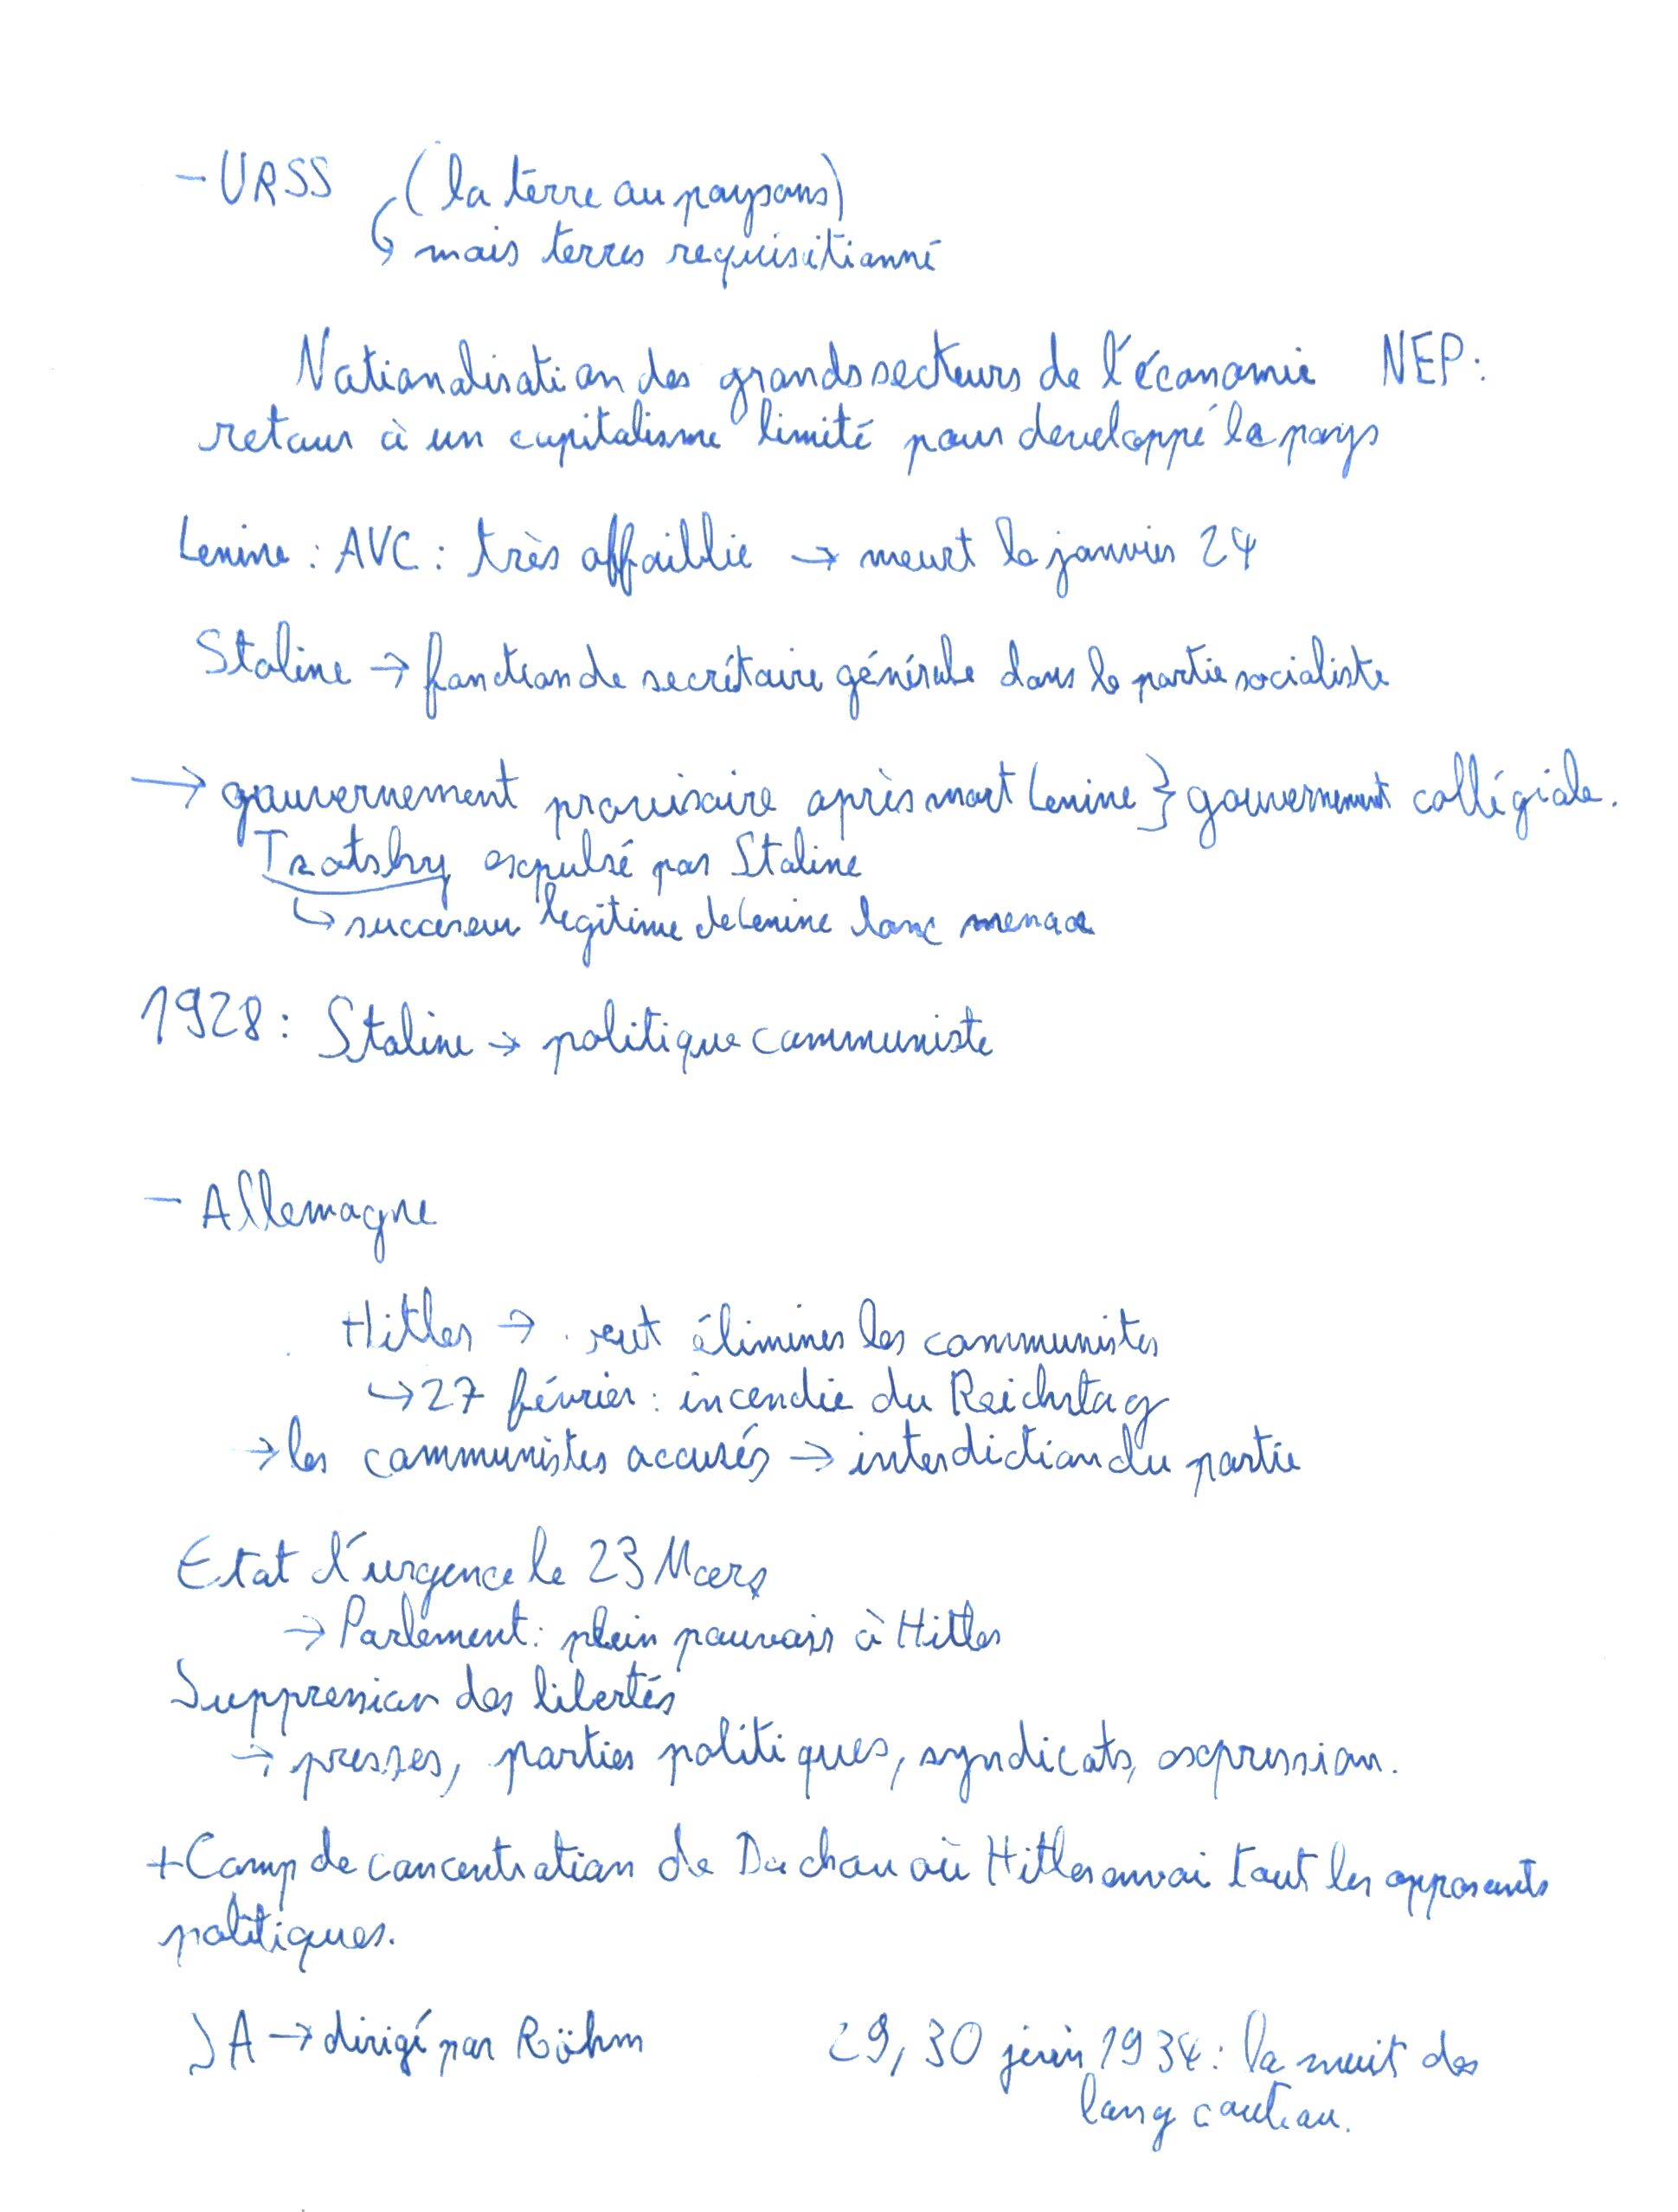 - URSS (la terre au paysans)
↳ mais terres requisitionné
Nationalisation des grands secteurs de l'économie NEP:
retour à un capitalisme limité pour developpé le pays
Lenine : AVC : très affaiblie → meurt le janvier 24
Staline → fonction de secrétaire générale dans le partie socialiste
→ gouvernement provisoire après mort Lenine } gouvernement collégiale.
Trotsky expulsé par Staline
↳ successeur legitime de Lenine donc menace
1928 : Staline → politique communiste
- Allemagne
Hitler → veut éliminer les communistes
↳ 27 février : incendie du Reichstag
→ les communistes accusés → interdiction du partie
Etat d'urgence le 23 Mars
→ Parlement : plein pouvoir à Hitler
Suppression des libertés
→ presses, parties politiques, syndicats, expression.
+ Camp de concentration de Dachau où Hitler envoi tout les opposants
politiques.
SA → dirigé par Röhm 29, 30 juin 1934 : la nuit des
long couteau.